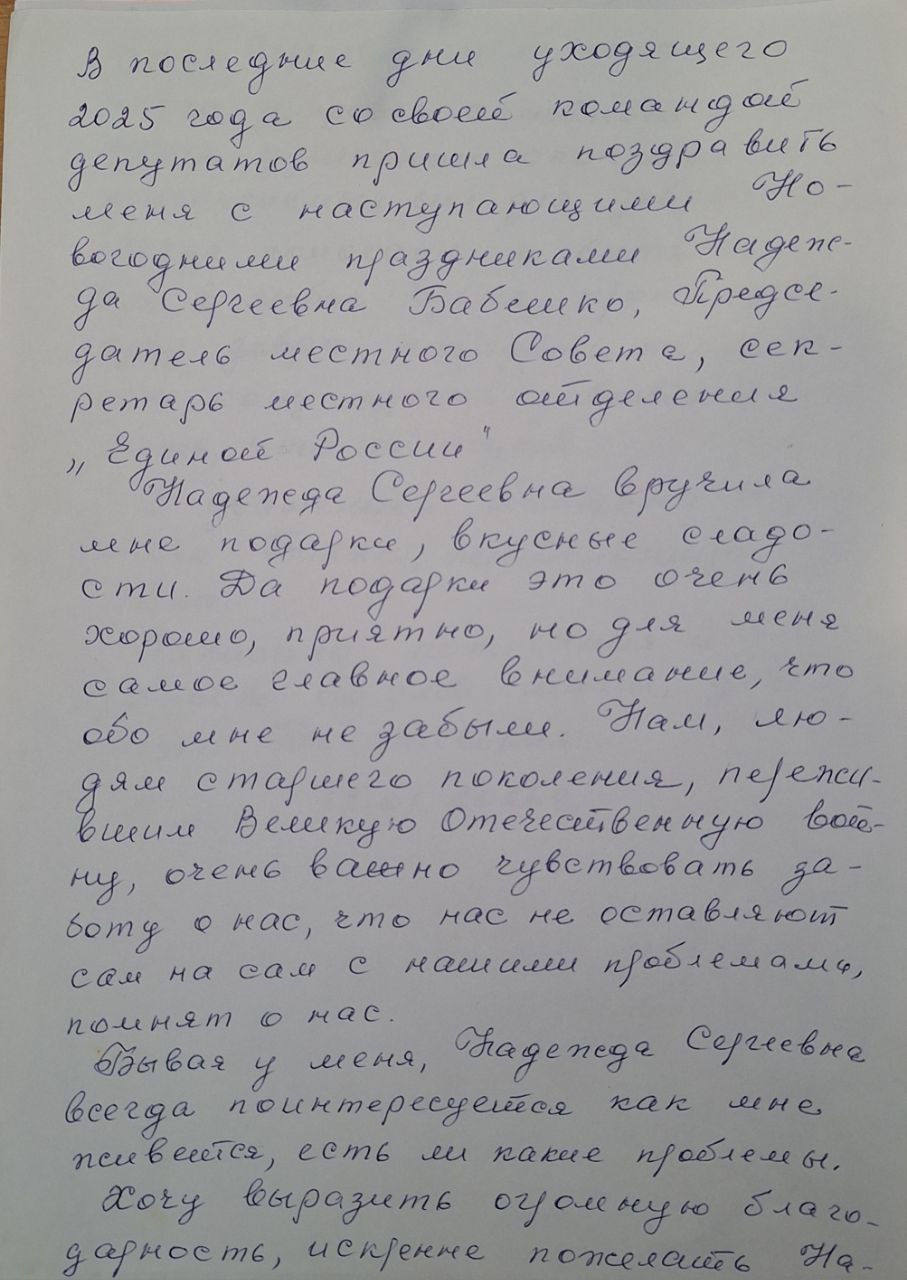 В последние дни уходящего
2025 года со своей командой
депутатов пришла поздравить
меня с наступающими Но-
вогодними праздниками Надеж-
да Сергеевна Бабешко, Предсе-
датель местного Совета, сек-
ретарь местного отделения
„Единой России"
Надежда Сергеевна вручила
мне подарки, вкусные сладо-
сти. Да подарки это очень
хорошо, приятно, но для меня
самое главное внимание, что
обо мне не забыли. Нам, лю-
дям старшего поколения, пережи-
вшим Великую Отечественную вой-
ну, очень важно чувствовать за-
боту о нас, что нас не оставляют
сам на сам с нашими проблемами,
помнят о нас.
Бывая у меня, Надежда Сергеевна
всегда поинтересуется как мне
живётся, есть ли какие проблемы.
Хочу выразить огромную благо-
дарность, искренне пожелать На-